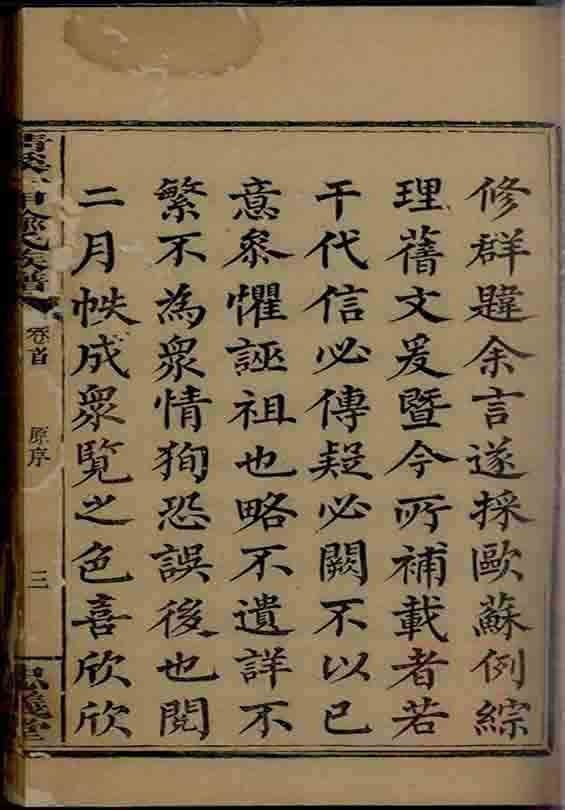 修群韙余言遂採歐蘇例綜
理舊文爰暨今所補載者若
干代信必傳疑必闕不以已
意叅懼誣祖也略不遺詳不
繁不為衆情狥恐誤後也閱
二月帙成衆覽之色喜欣欣
氏族譜
卷首 原序 三
義堂